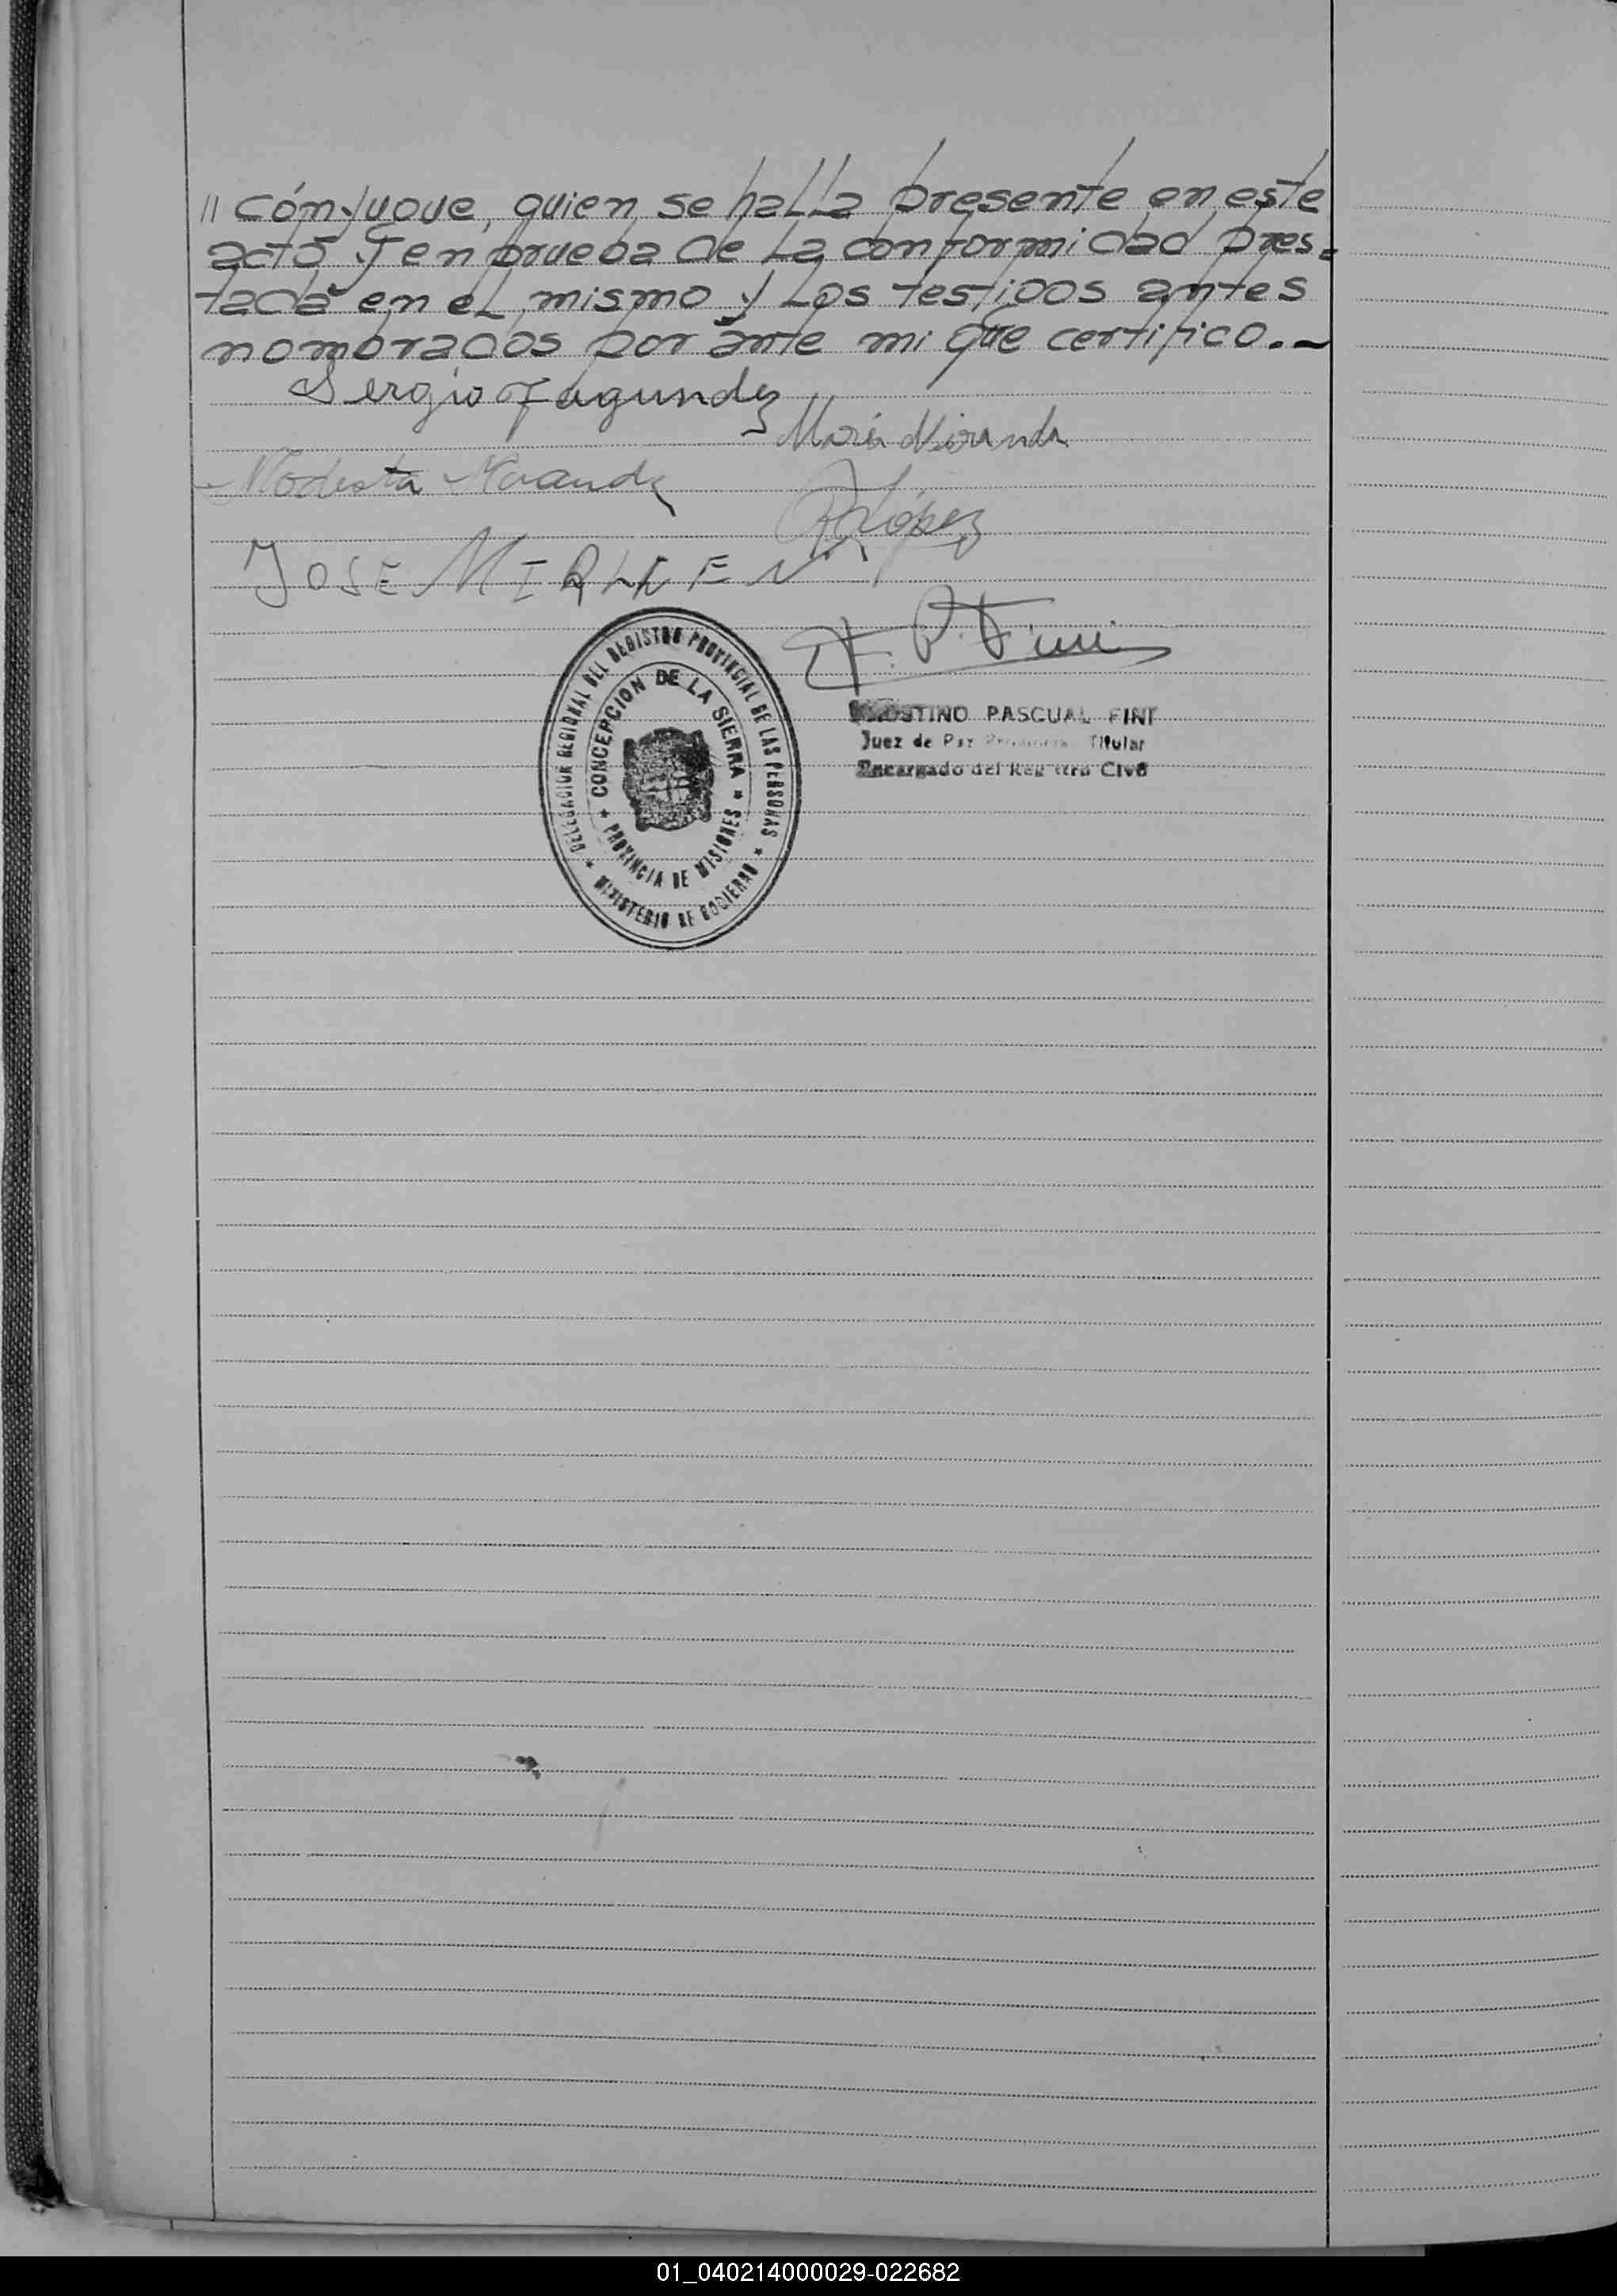 // Cónyugue, quien se halla presente en este
acto y en prueba de la conformidad pres=
tada en el mismo y los testigos antes
nombrados por ante mi que certifico.-
Sergio Fagundez
María Miranda
Modesta Miranda
R López
JOSE
F. P. Fini
DELEGACION REGIONAL DEL REGISTRO PROVINCIAL DE LAS PERSONAS
* MINISTERIO DE GOBIERNO *
CONCEPCION DE LA SIERRA
* PROVINCIA DE MISIONES *
PASCUAL FINI
Juez de Paz Titular
Encargado del Registro Civil
01_040214000029-022682